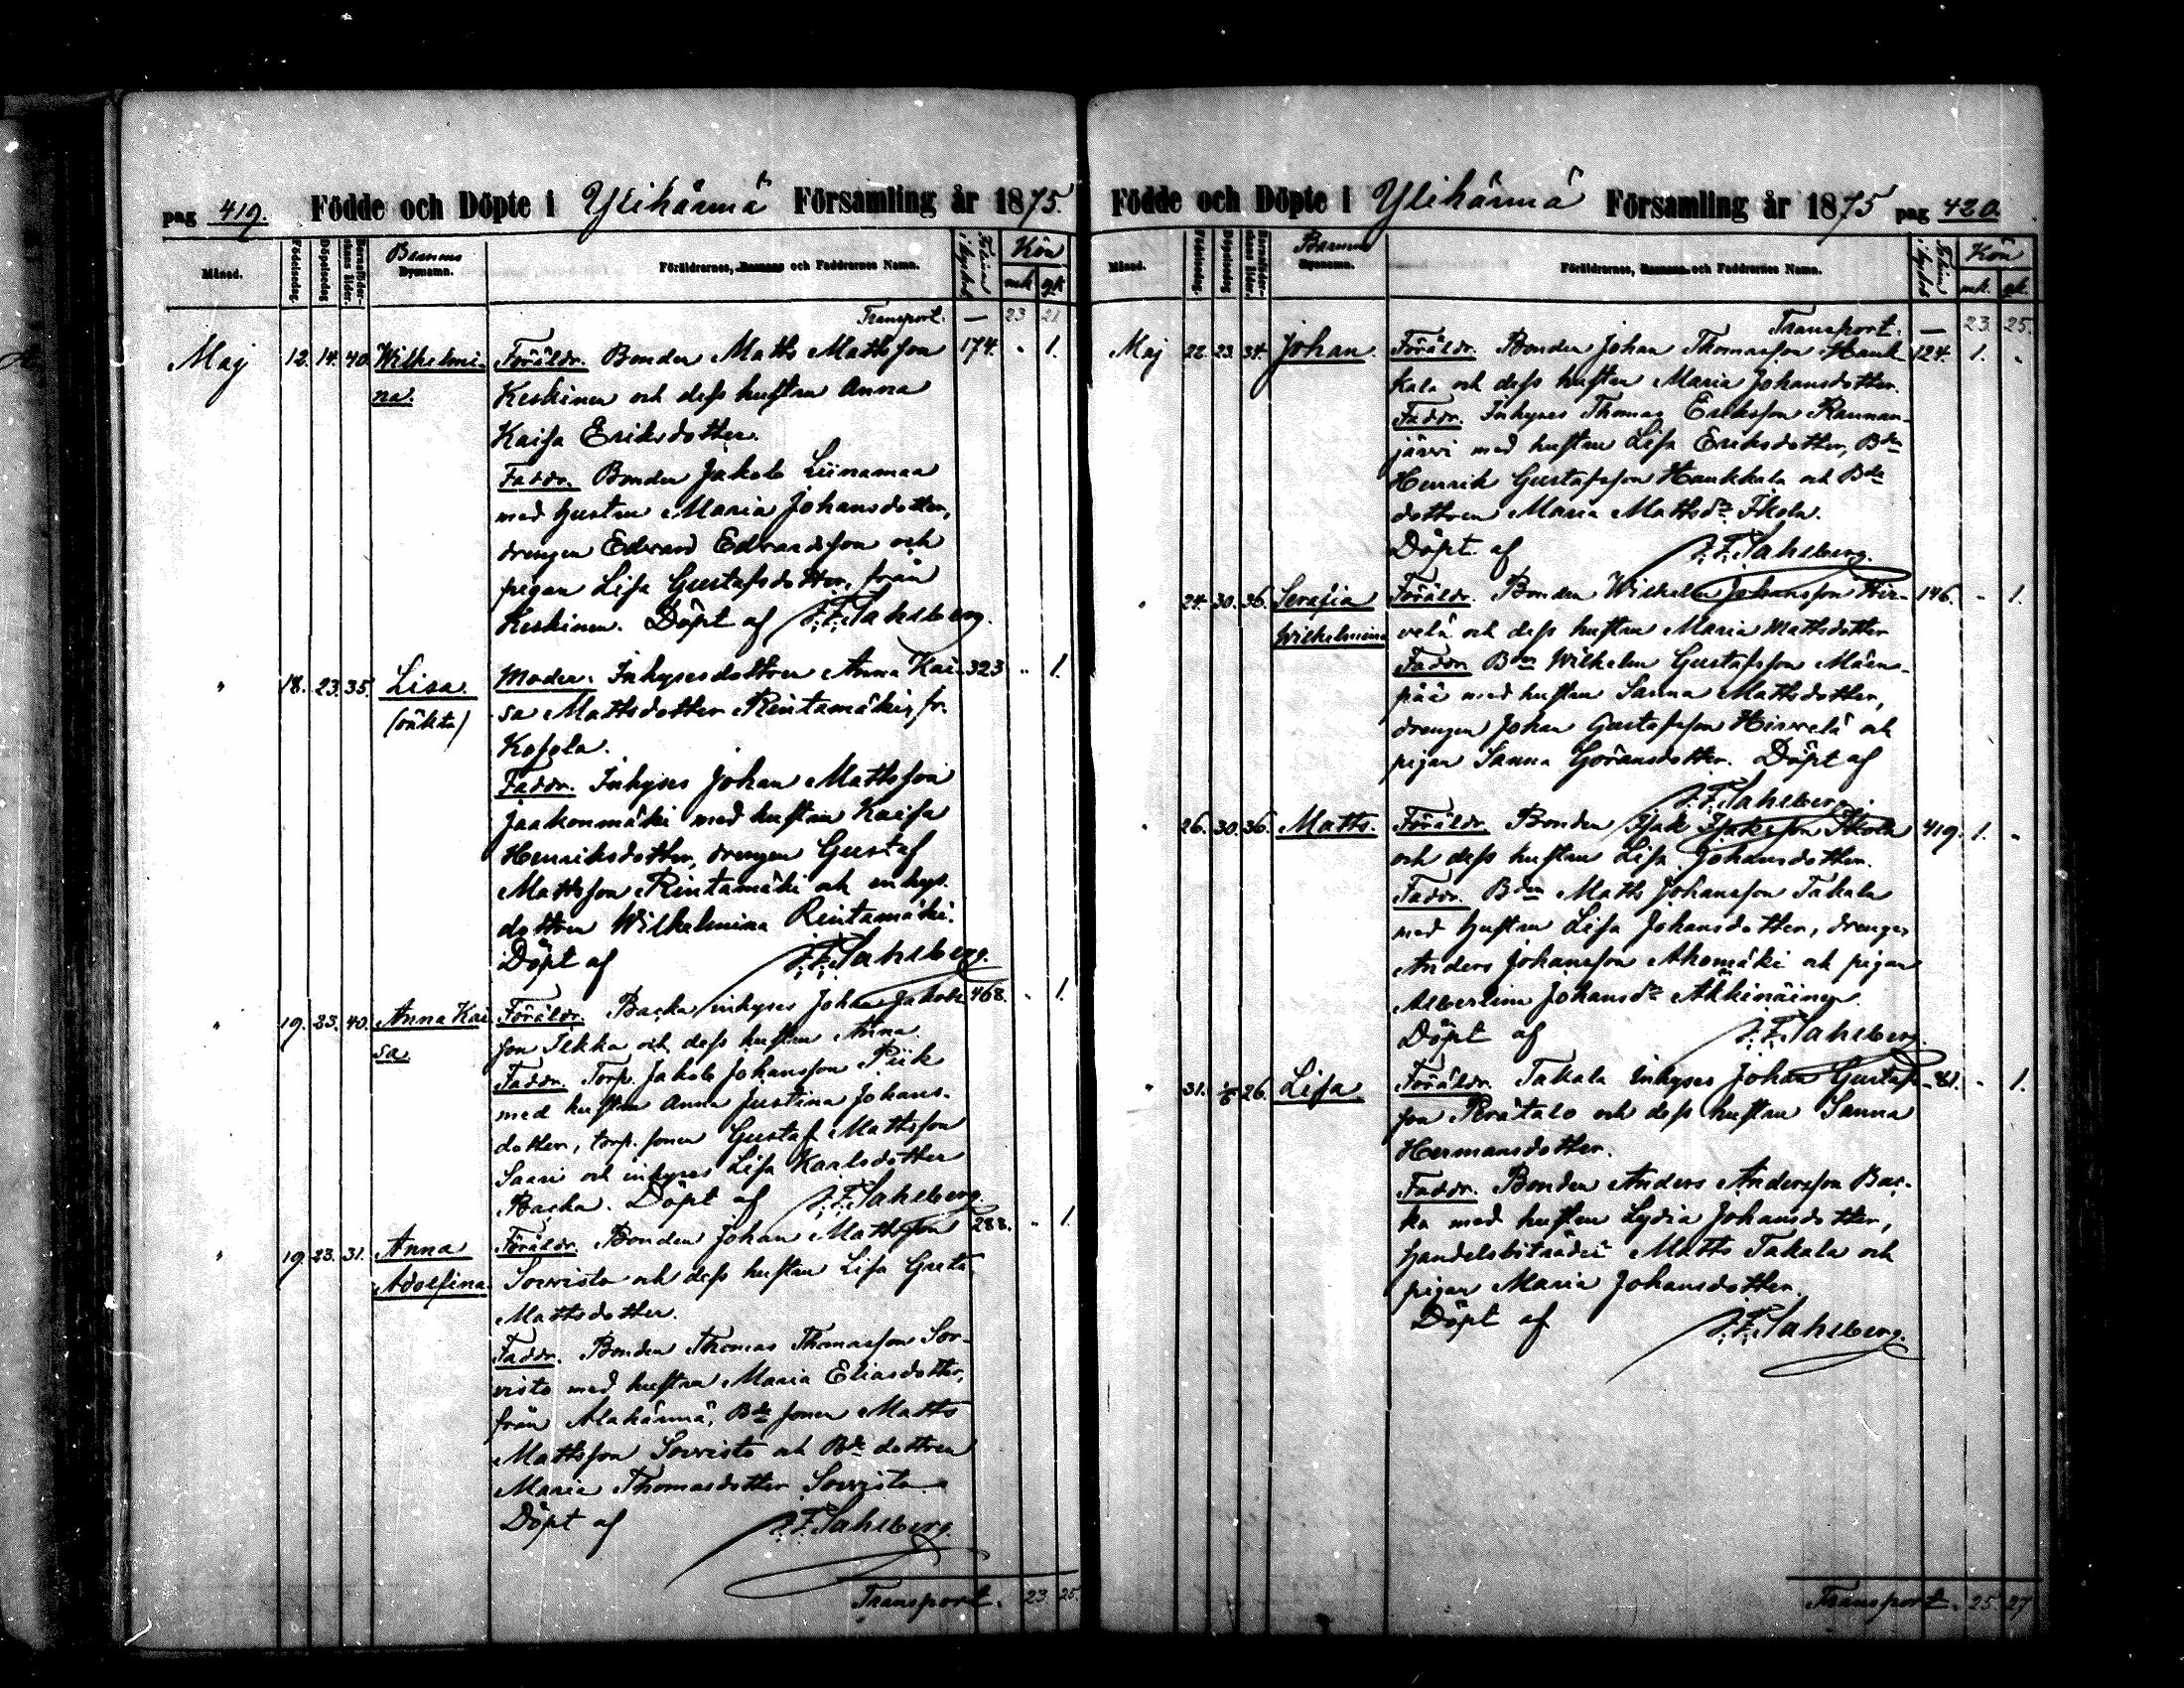 pag 419. Födde och Döpte i Ylihärmä Församling år 1875.
Månad. Födelsedag. Döpelsedag Barnaföderskans ålder. Barnens Dopnamn. Föräldrarnes, Barnens och Faddrarnes Namn. Kön
mk qk
Transport. — 23 21
Maj 12. 14. 40. Wilhelmi- Föräldr. Bonden Matts Mattsson 174. " 1.
na. Keskinen och dess hustru Anna
Kaisa Eriksdotter.
Faddr. Bonden Jakob Liinamaa
med hustru Maria Johansdotter,
drengen Edvard Edvardsson och
pigan Lisa Gustafsdotter, från
Keskinen. Döpt af J.F. Sahlberg.
" 18. 23. 35. Lisa. Moder: Inhysesdottren Anna Kai- 323 " 1.
(oäkta) sa Mattsdotter Rintamäki, fr.
Kosola.
Faddr. Inhyses Johan Mattsson
Jaakonmäki med hustru Kaisa
Henriksdotter, drengen Gustaf
Mattsson Rintamäki och inhys.
dottren Wilhelmina Rintamäki.
Döpt af J.F. Sahlberg.
" 19. 23. 40. Anna Kai- Föräldr. Backa inhyses Johan Jakobs- 468. " 1.
sa son Ilkka och dess hustru Anna.
Faddr. Torp. Jakob Johansson Piik
med hustru Anna Justina Johans-
dotter, torp. sonen Gustaf Mattsson
Saari och inhyses Lisa Karlsdotter
Backa. Döpt af J.F. Sahlberg.
" 19. 23. 31. Anna Föräldr. Bonden Johan Mattsson 288. " 1.
Adolfina Sorvisto och dess hustru Lisa Greta
Mattsdotter.
Faddr. Bonden Thomas Thomasson Sor-
visto med hustru Maria Eliasdotter,
från Alahärmä, Bde sonen Matts
Mattsson Sorvisto och Bde dottren
Maria Thomasdotter Sorvisto.
Döpt af J.F. Sahlberg.
Transport. 23. 25.
Födde och Döpte i Ylihärmä Församling år 1875 pag 420.
Månad. Födelsedag. Döpelsedag Barnaföderskans ålder. Barnens Dopnamn. Föräldrarnes, Barnens och Faddrarnes Namn. Kön
mk. qk.
Transport. — 23. 25.
Maj 22. 23. 34. Johan. Föräldr. Bonden Johan Thomasson Hauk- 124. 1. "
kala och dess hustru Maria Johansdotter.
Faddr. Inhyses Thomas Eriksson Rannan-
järvi med hustru Lisa Eriksdotter, Bdn
Henrik Gustafsson Haukkala och Bde
dottren Maria Mattsdr Ikola.
Döpt af J.F. Sahlberg.
" 24. 30. 36. Serafia Föräldr. Bonden Wilhelm Johansson Hir- 146. " 1.
Wilhelmina velä och dess hustru Maria Mattsdotter
Faddr. Bdn Wilhelm Gustafsson Mäen-
pää med hustru Sanna Mattsdotter,
drengen Johan Gustafsson Hirvelä och
pigan Sanna Göransdotter. Döpt af
J.F. Sahlberg.
" 26. 30. 36. Matts. Föräldr. Bonden Isak Isaksson Ikola 419. 1. "
och dess hustru Lisa Johansdotter.
Faddr. Bdn Matts Johansson Takala
med hustru Lisa Johansdotter, drengen
Anders Johansson Ahomäki och pigan
Albertina Johansdr
Döpt af J.F. Sahlberg.
" 31. 1/6 26. Lisa. Föräldr. Takala inhyses Johan Gustafs- 81. " 1.
son Perätalo och dess hustru Sanna
Hermansdotter.
Faddr. Bonden Anders Andersson Bac-
ka med hustru Lydia Johansdotter,
handelsbiträdet Matts Takala och
pigan Maria Johansdotter.
Döpt af J.F. Sahlberg.
Transport. 25. 27